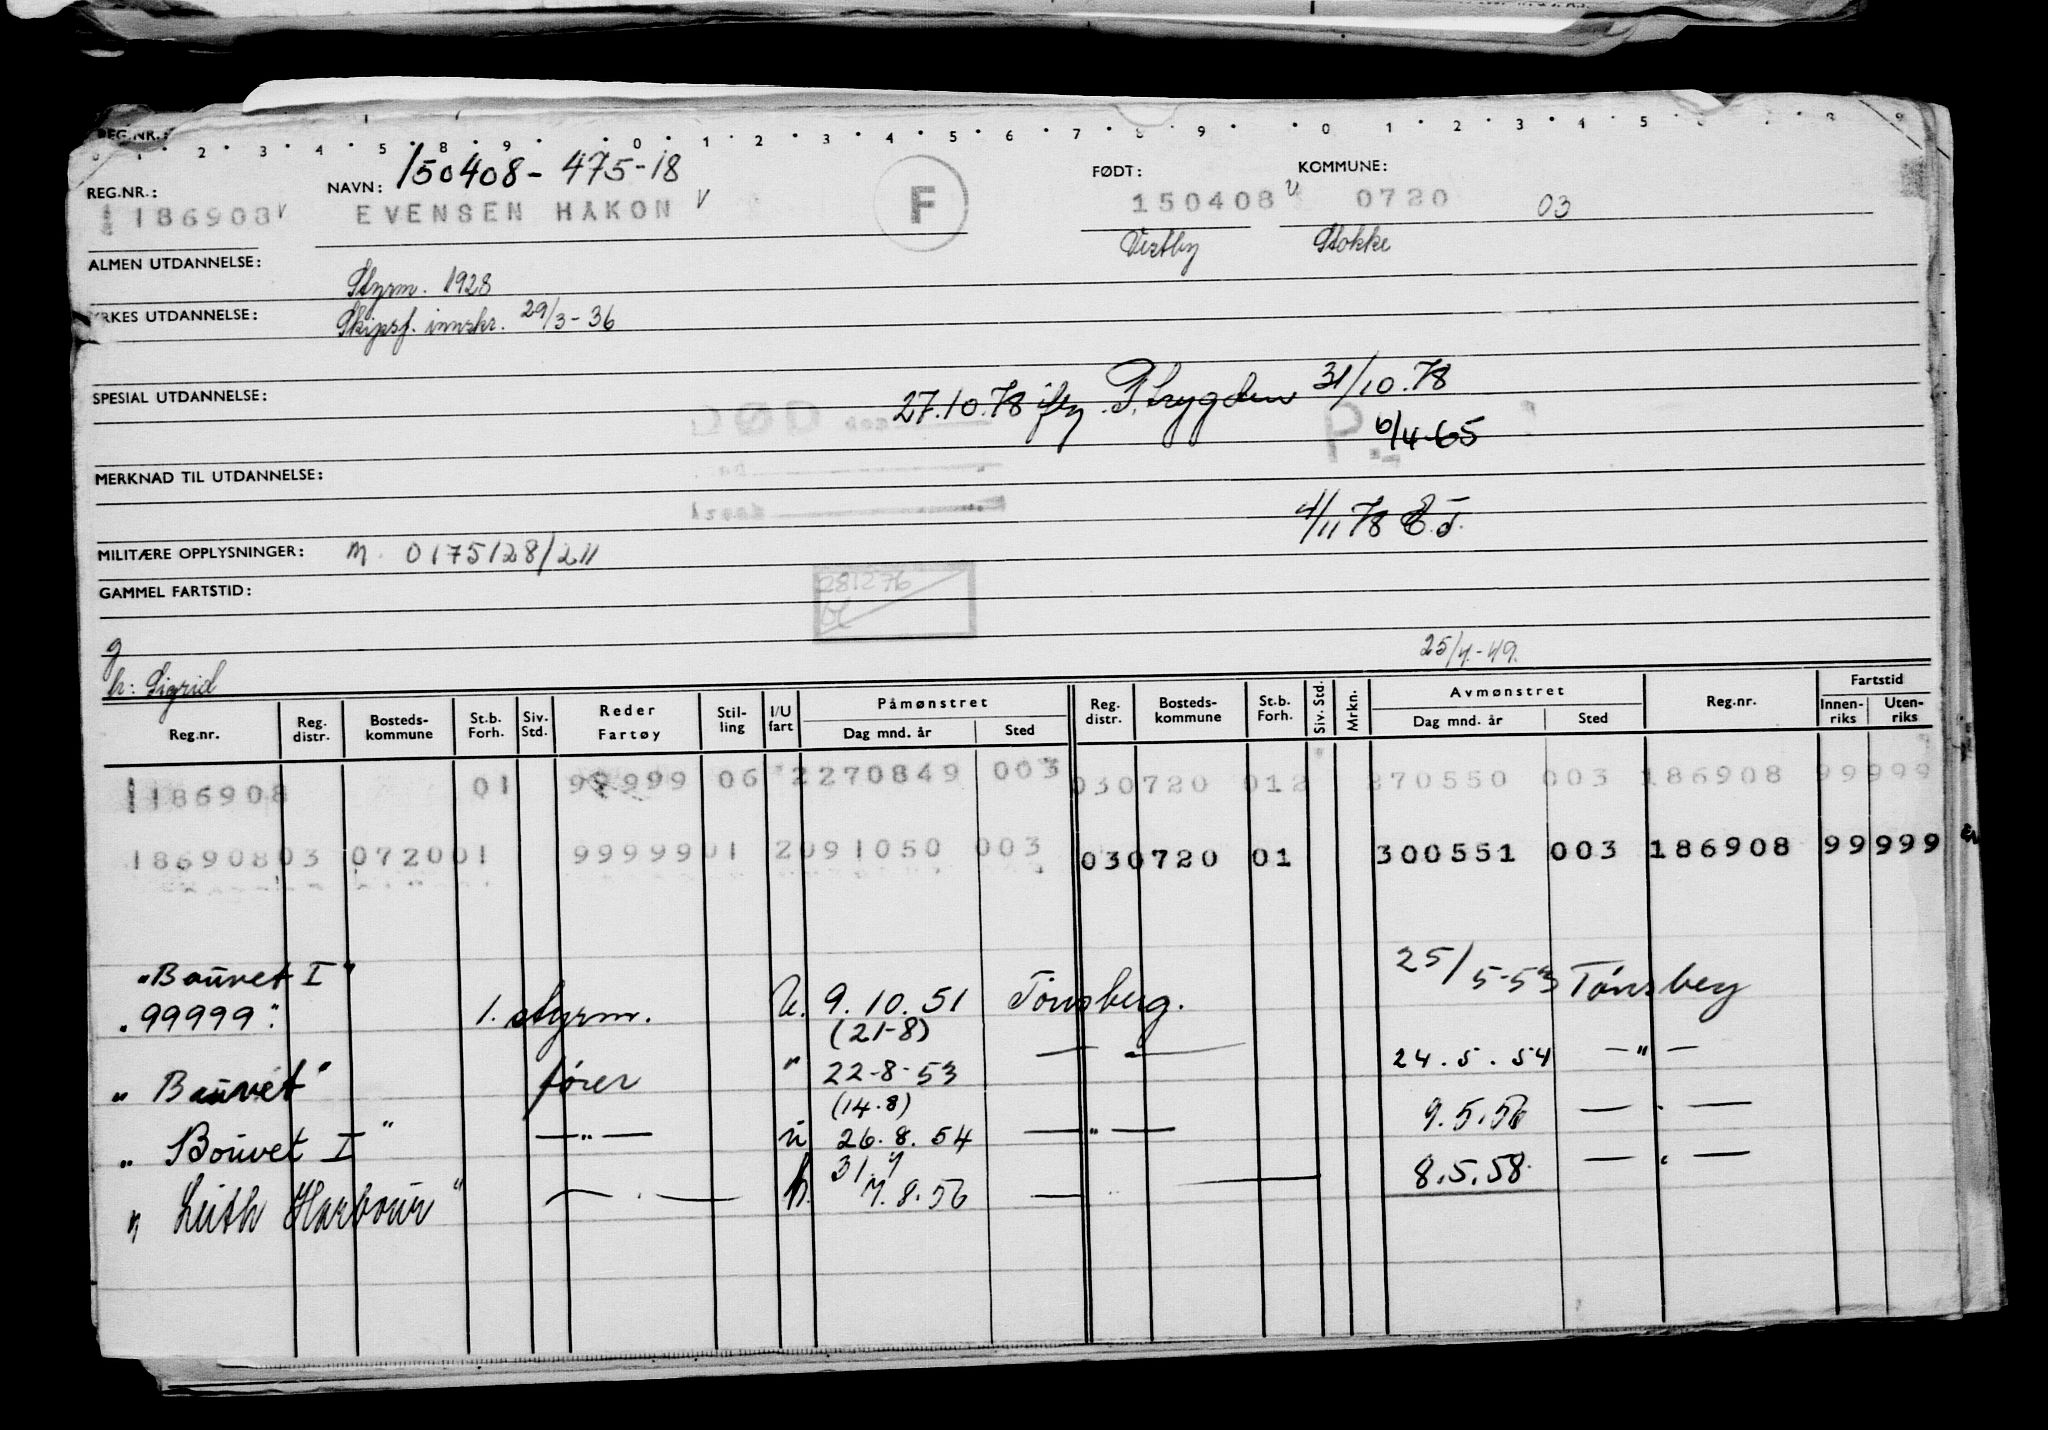 REG.NR.:
150408-475-18
REG.NR.: NAVN: FØDT: KOMMUNE:
186908 v EVENSEN HAKON v F 150408 v 0720 03
Vestby Stokke
ALMEN UTDANNELSE:
Styrm. 1928
YRKES UTDANNELSE: Skipsf. innskr. 29/3-36
SPESIAL UTDANNELSE: DØD den 27.10.78 P. 31/10.78
P 6/4-65
MERKNAD TIL UTDANNELSE:
Årsak 4/11 78 E.T.
MILITÆRE OPPLYSNINGER: M. 0175128/211
GAMMEL FARTSTID: 281276
g
h: Sigrid 25/4-49.
Reg.nr. Reg. distr. Bosteds-kommune St.b. Forh. Siv. Std. Reder Fartøy Stil-ling I/U fart Påmønstret Dag mnd. år Sted Reg. distr. Bosteds-kommune St.b. Forh. Siv. Std. Mrkn. Avmønstret Dag mnd. år Sted Reg.nr. Fartstid Innen-riks Uten-riks
186908 01 99999 06 2270849 003 030720 012 270550 003 186908 99999
186908 03 0720 01 99999 01 2091050 003 030720 01 300551 003 186908 99999
"Bouvet I"
"99999" 1. styrm. U. 9.10.51 Tønsberg. 25/5-53 Tønsberg
(21-8)
"Bouvet" fører " 22-8-53 — " — 24.5.54 — " —
(14.8)
"Bouvet I" — " — u 26.8.54 — " — 9.5.56 — " —
31.7
"Leith Harbour" — " — 7.8.56 — " — 8.5.58. — " —